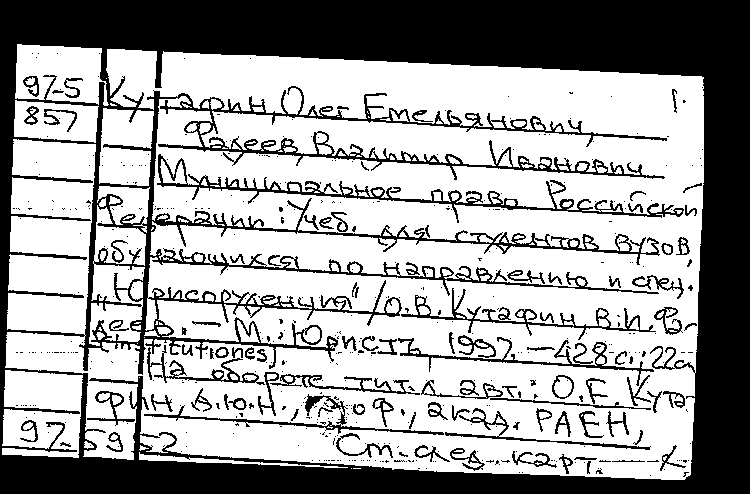 97-5 Кутафин, Олег Емельянович, 1.
857
Фадеев, Владимир Иванович
Муниципальное право Российской
Федерации : Учеб. для студентов вузов,
обучающихся по направлению и спец.
"Юриспруденция" / О.В. Кутафин, В.И. Фа-
деев. — М. : Юристъ, 1997. — 428 с. ; 22 см
(Institutiones).
На обороте тит. л. авт. : О.Е. Кута-
фин, д.ю.н., проф., акад. РАЕН,
97-5952 См. след. карт.